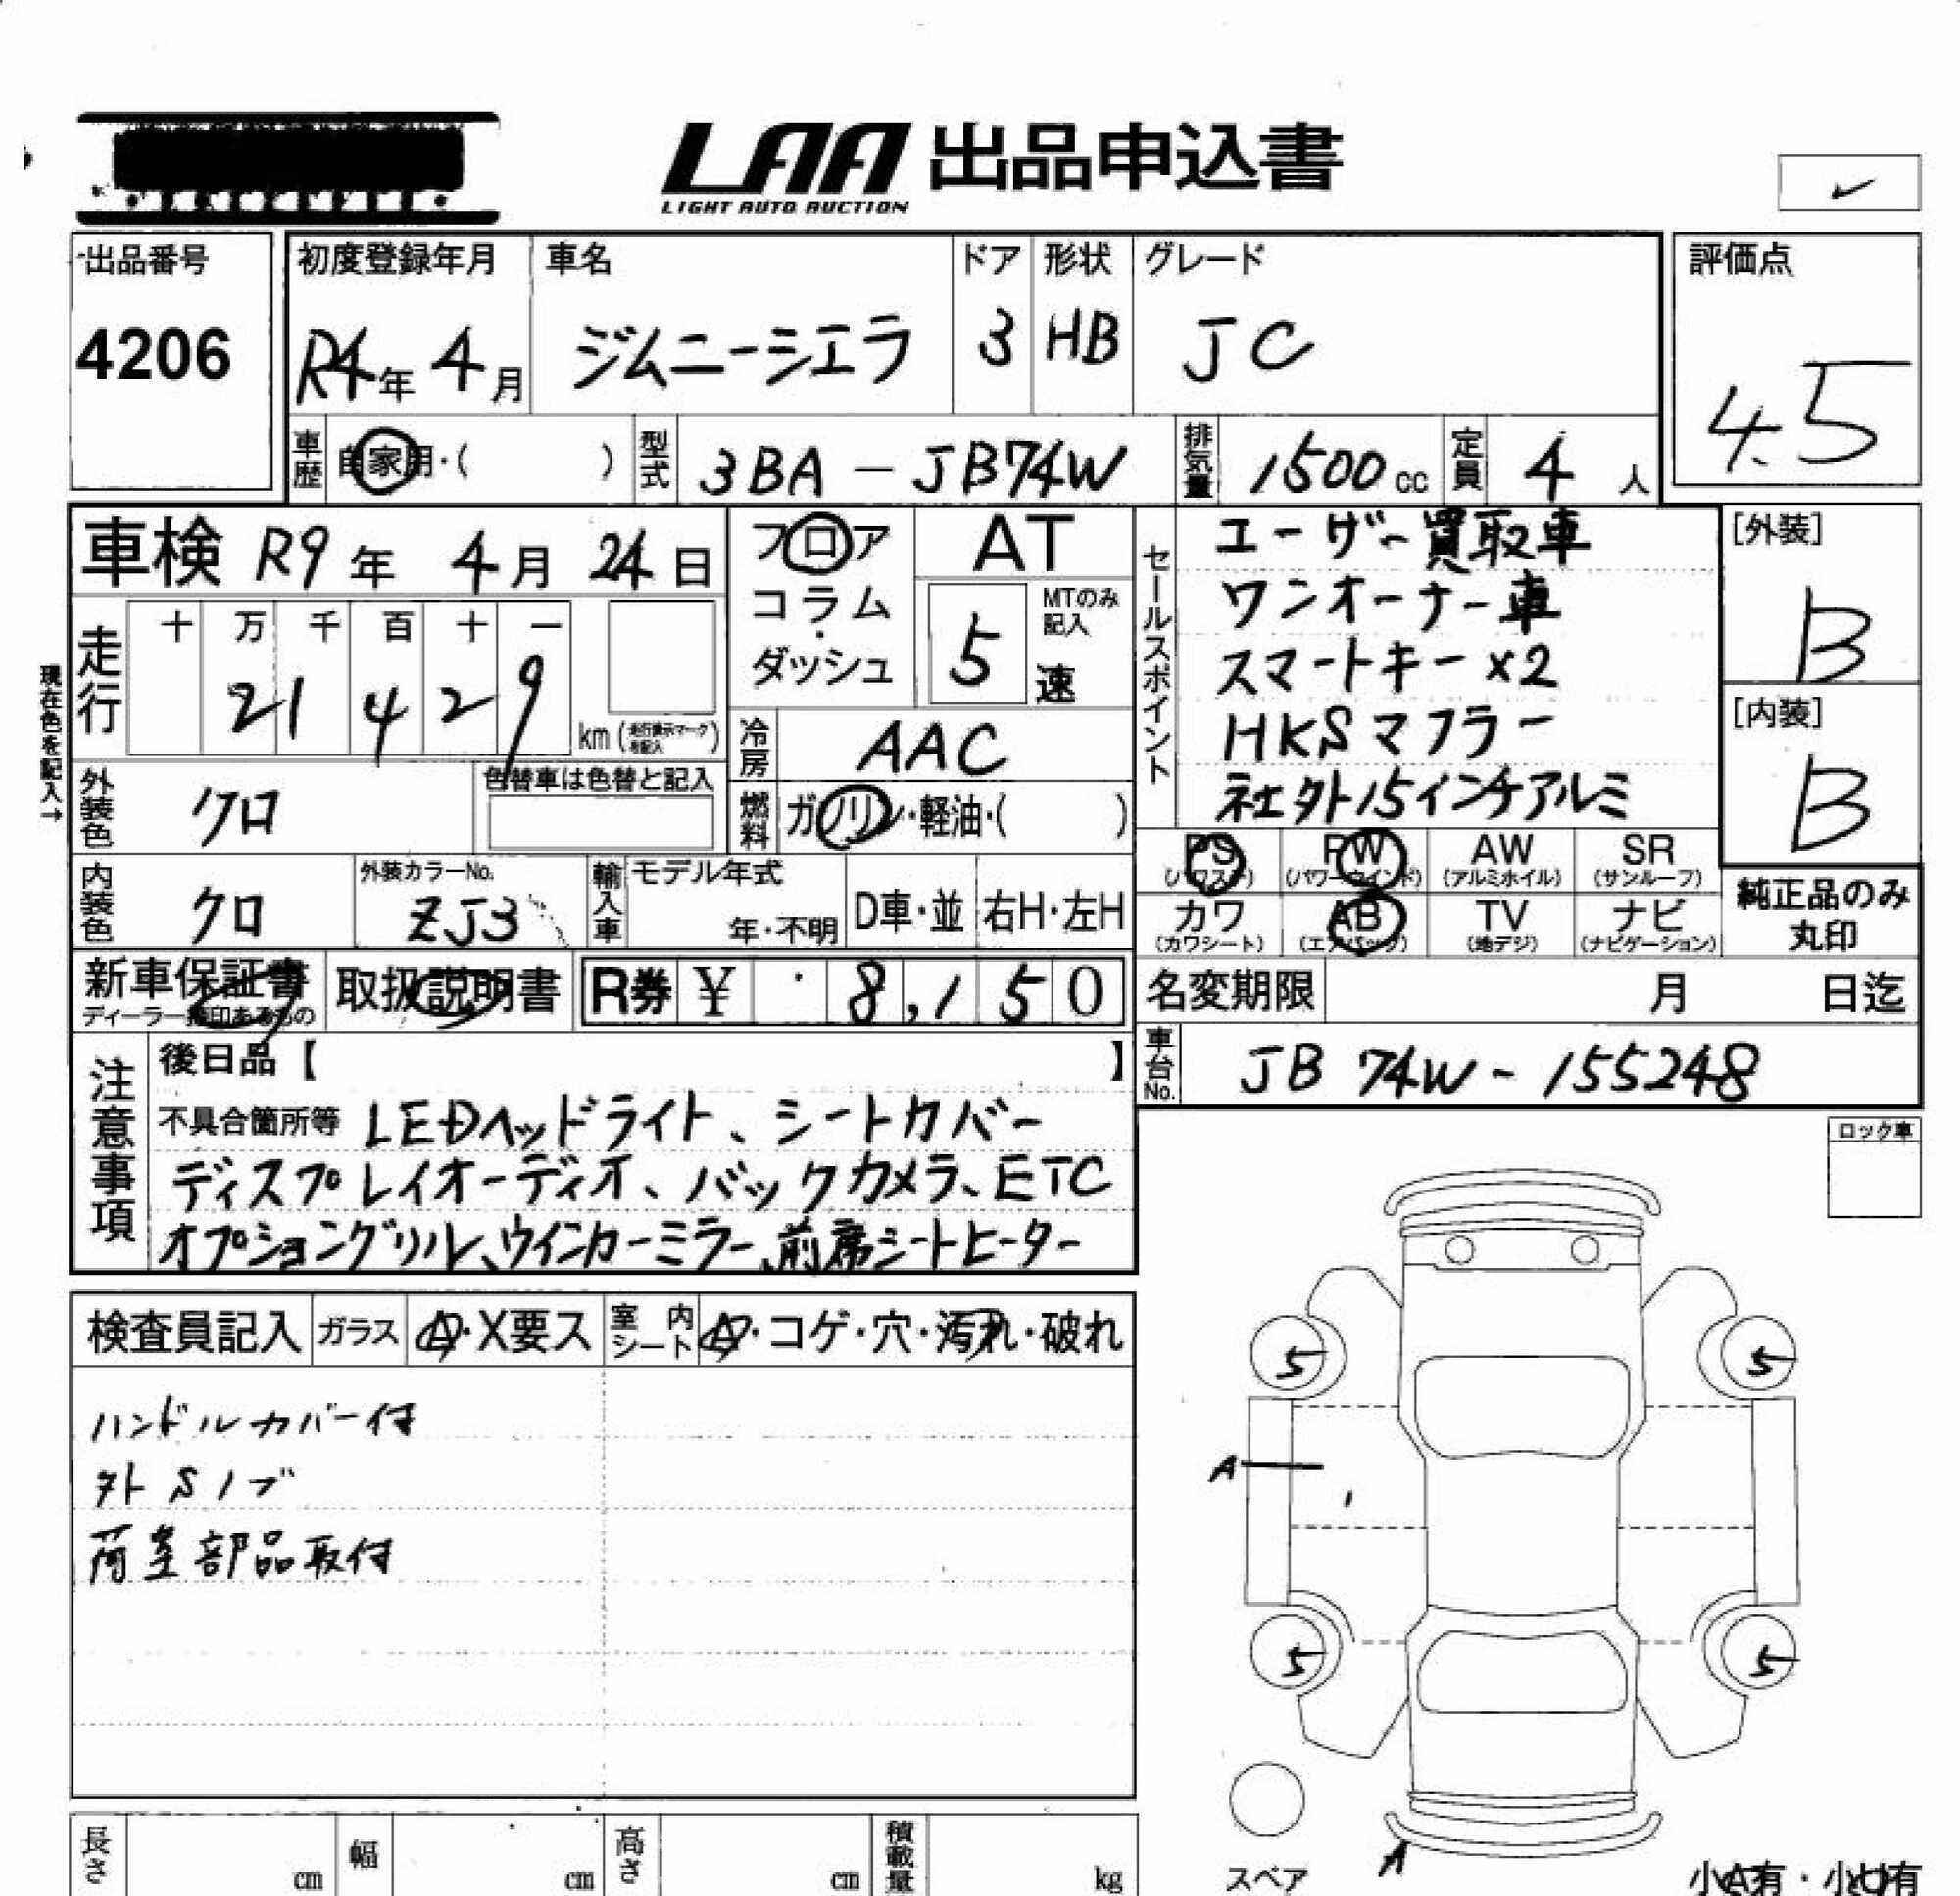 LAA 出品申込書
LIGHT AUTO AUCTION
✓
出品番号
4206
初度登録年月
R4年 4月
車名
ジムニーシエラ
ドア
3
形状
HB
グレード
JC
評価点
4.5
車歴
自家用・( )
型式
3BA-JB74W
排気量
1500cc
定員
4人
車検 R9年 4月 24日
フロア
コラム
・
ダッシュ
AT
MTのみ記入
5速
セールスポイント
ユーザー買取車
ワンオーナー車
スマートキー×2
HKSマフラー
社外15インチアルミ
[外装]
B
[内装]
B
現在色を記入→
走行
十 万 千 百 十 一
21429
km(走行表示マークを記入)
冷房
AAC
燃料
ガソリン・軽油・( )
外装色
クロ
色替車は色替と記入
内装色
クロ
外装カラーNo.
ZJ3
輸入車
モデル年式
年・不明
D車・並
右H・左H
PS
(パワステ)
PW
(パワーウインド)
AW
(アルミホイル)
SR
(サンルーフ)
カワ
(カワシート)
AB
(エアバック)
TV
(地デジ)
ナビ
(ナビゲーション)
純正品のみ
丸印
新車保証書
取扱説明書
R券 ¥ 8,150
名変期限
月 日迄
車台No.
JB74W-155248
注意事項
後日品【 】
不具合箇所等 LEDヘッドライト、シートカバー
ディスプレイオーディオ、バックカメラ、ETC
オプショングリル、ウインカーミラー、前席シートヒーター
ロック車
検査員記入
ガラス
A・X要ス
室内シート
A・コゲ・穴・汚れ・破れ
ハンドルカバー付
外Sノブ
荷室部品取付
5
5
A
5
5
スペア
A
小A有・小U有
長さ
cm
幅
cm
高さ
cm
積載量
kg